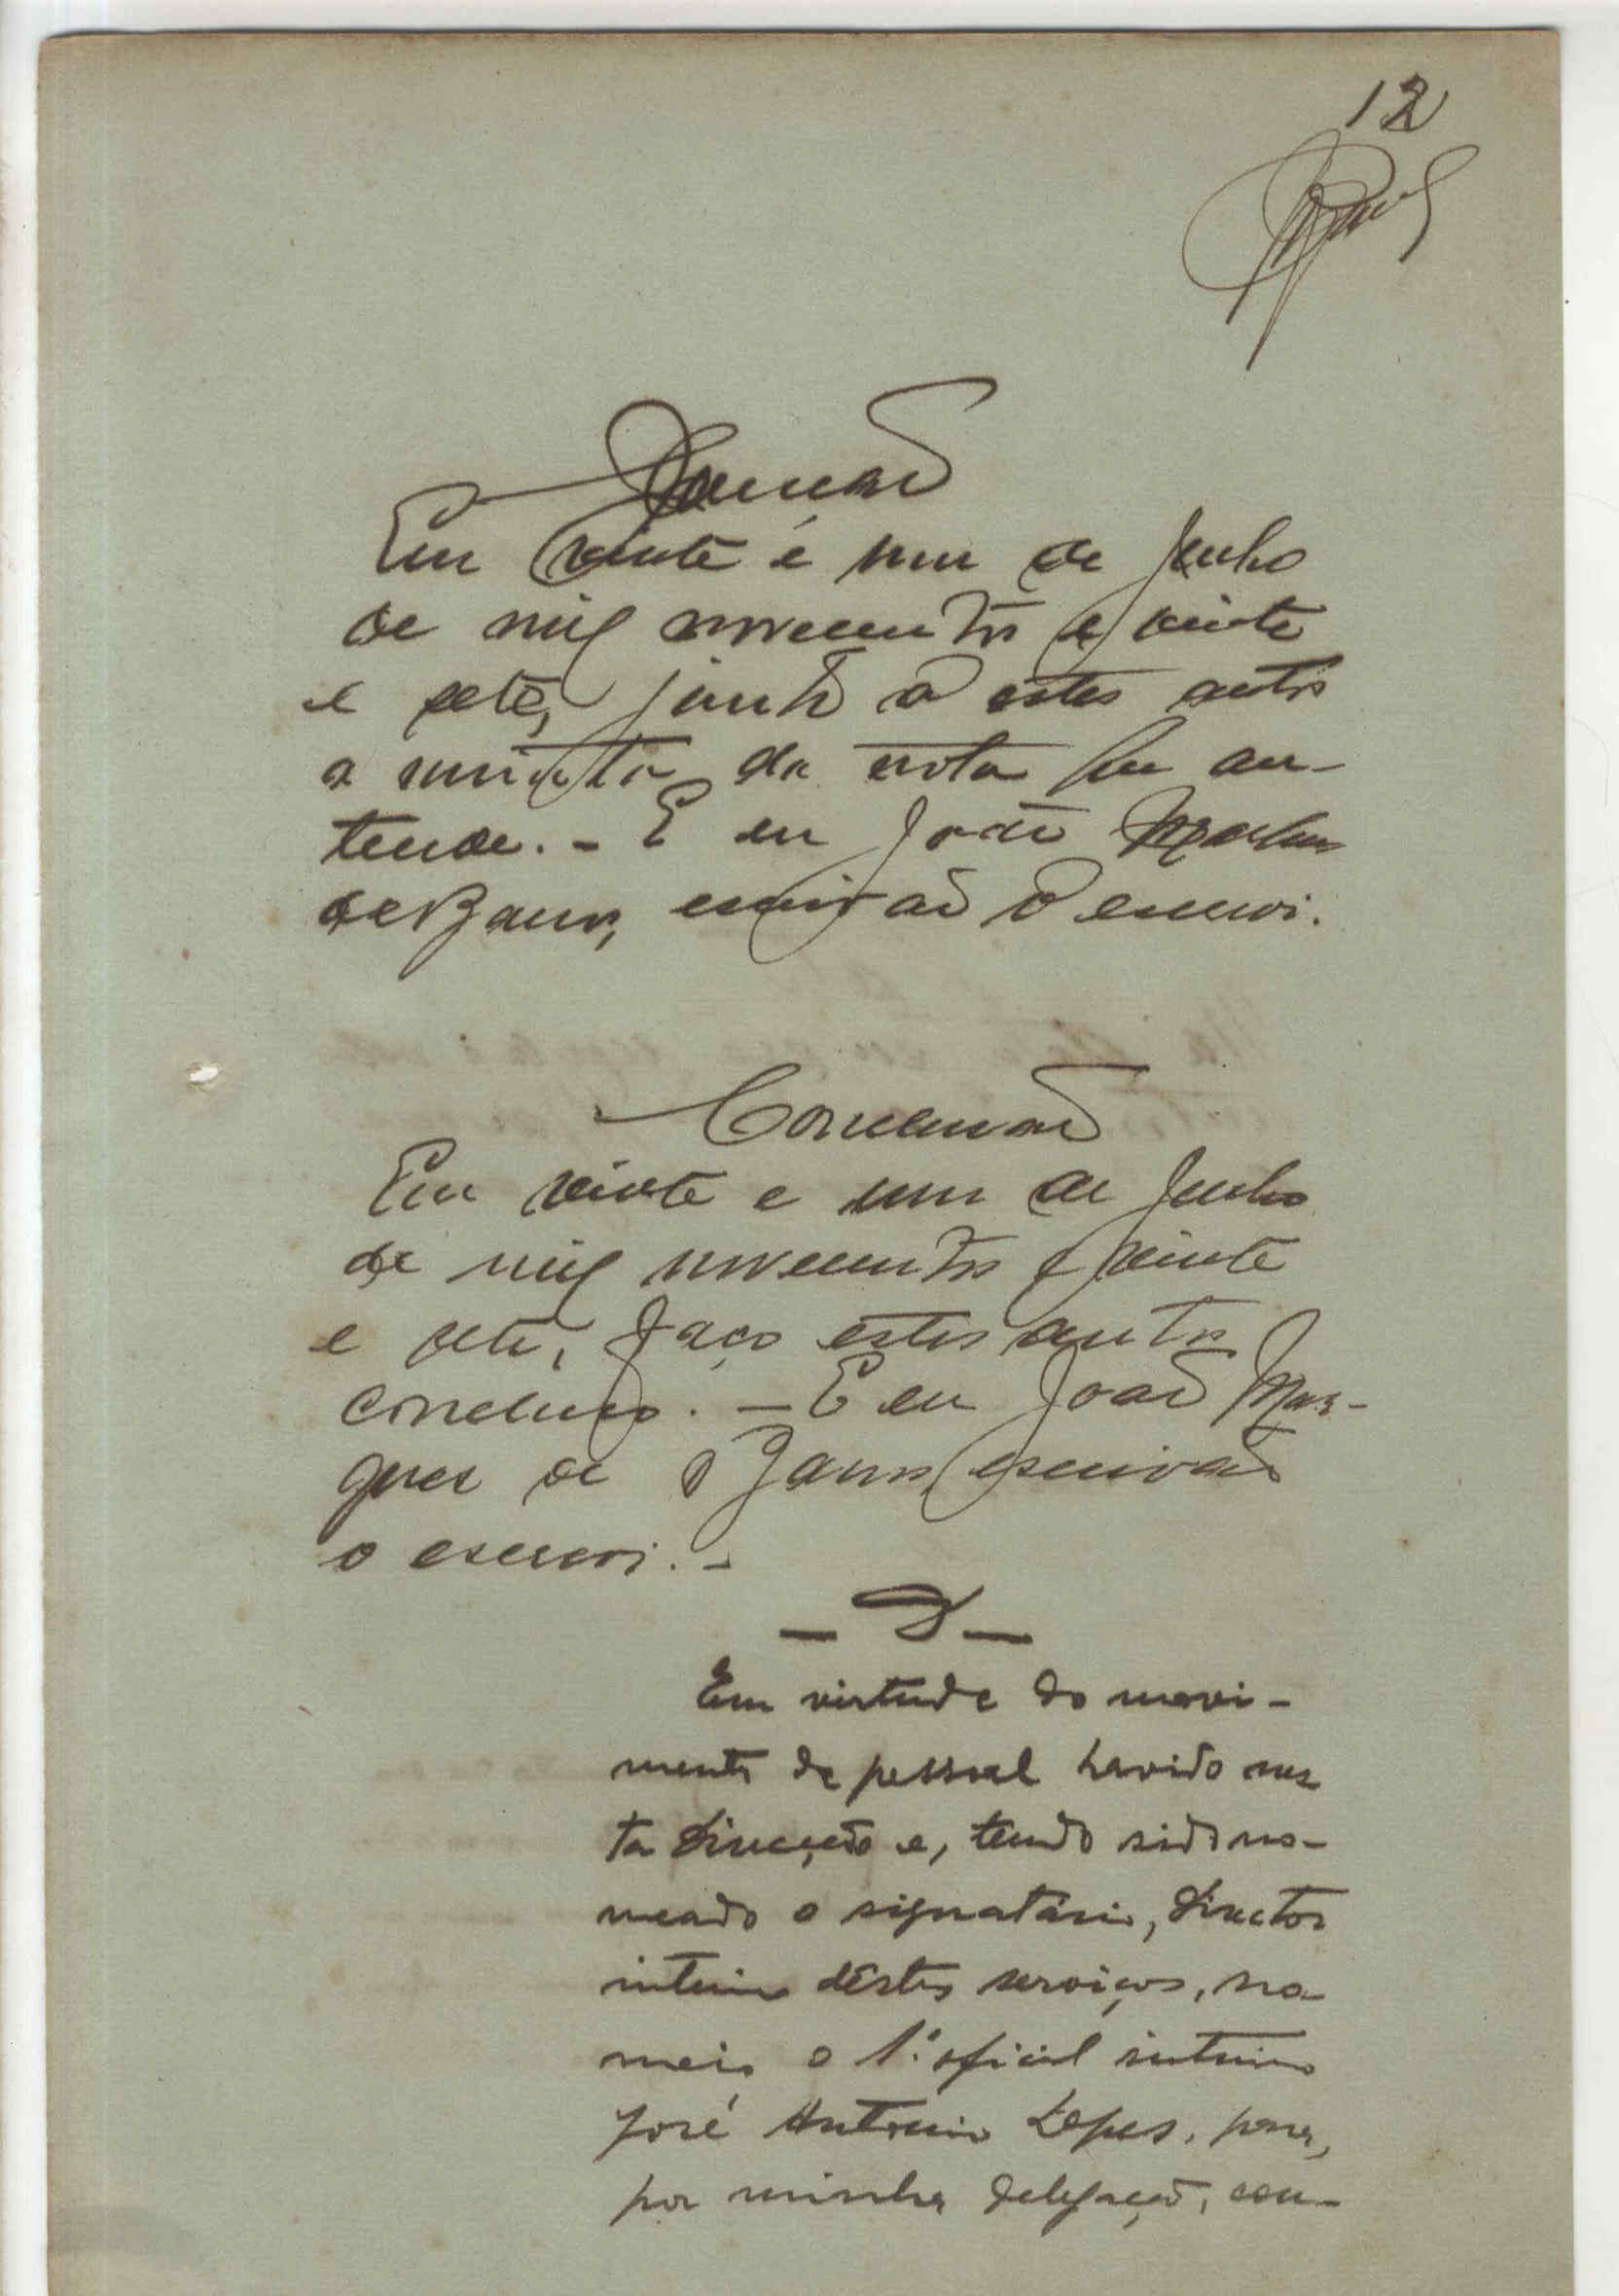 12
Em vinte e um de Junho
de mil novecentos e vinte
e sete, junto a estes autos
a minuta da nota que an-
tende. - E eu João Marques
de Barros, escrivão o escrevi.
Conclusão
Em vinte e um de Junho
de mil novecentos e vinte
e sete, faço estes autos
conclusos. - E eu João Mar-
ques de Barros escrivão
o escrevi. -
Em virtude do movi-
mento de pessoal havido nes
ta Direcção e, tendo sido no-
meado o signatário, Director
interino dêstes serviços, no
meio o 1.º oficial interino
José Antonio Lopes, para,
por minha delegação, con-